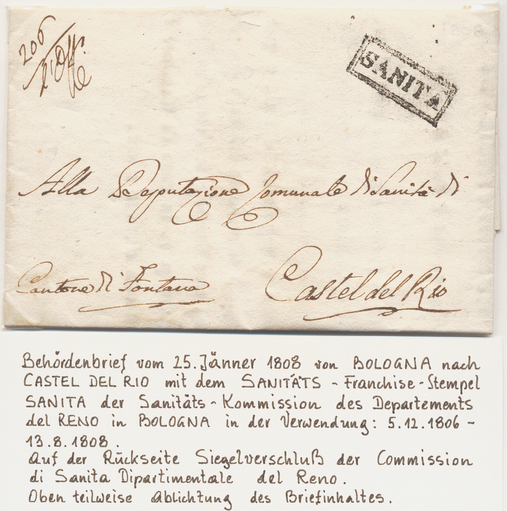 206
SANITA
Alla Deputazione Comunale di Sanità di
Cantone di Fontana Castel del Rio
Behördenbrief vom 25. Jänner 1808 von BOLOGNA nach
CASTEL DEL RIO mit dem SANITÄTS - Franchise - Stempel
SANITA der Sanitäts - Kommission des Departements
del RENO in BOLOGNA in der Verwendung: 5.12.1806 -
13.8.1808.
Auf der Rückseite Siegelverschluß der Commission
di Sanita Dipartimentale del Reno.
Oben teilweise Ablichtung des Briefinhaltes.